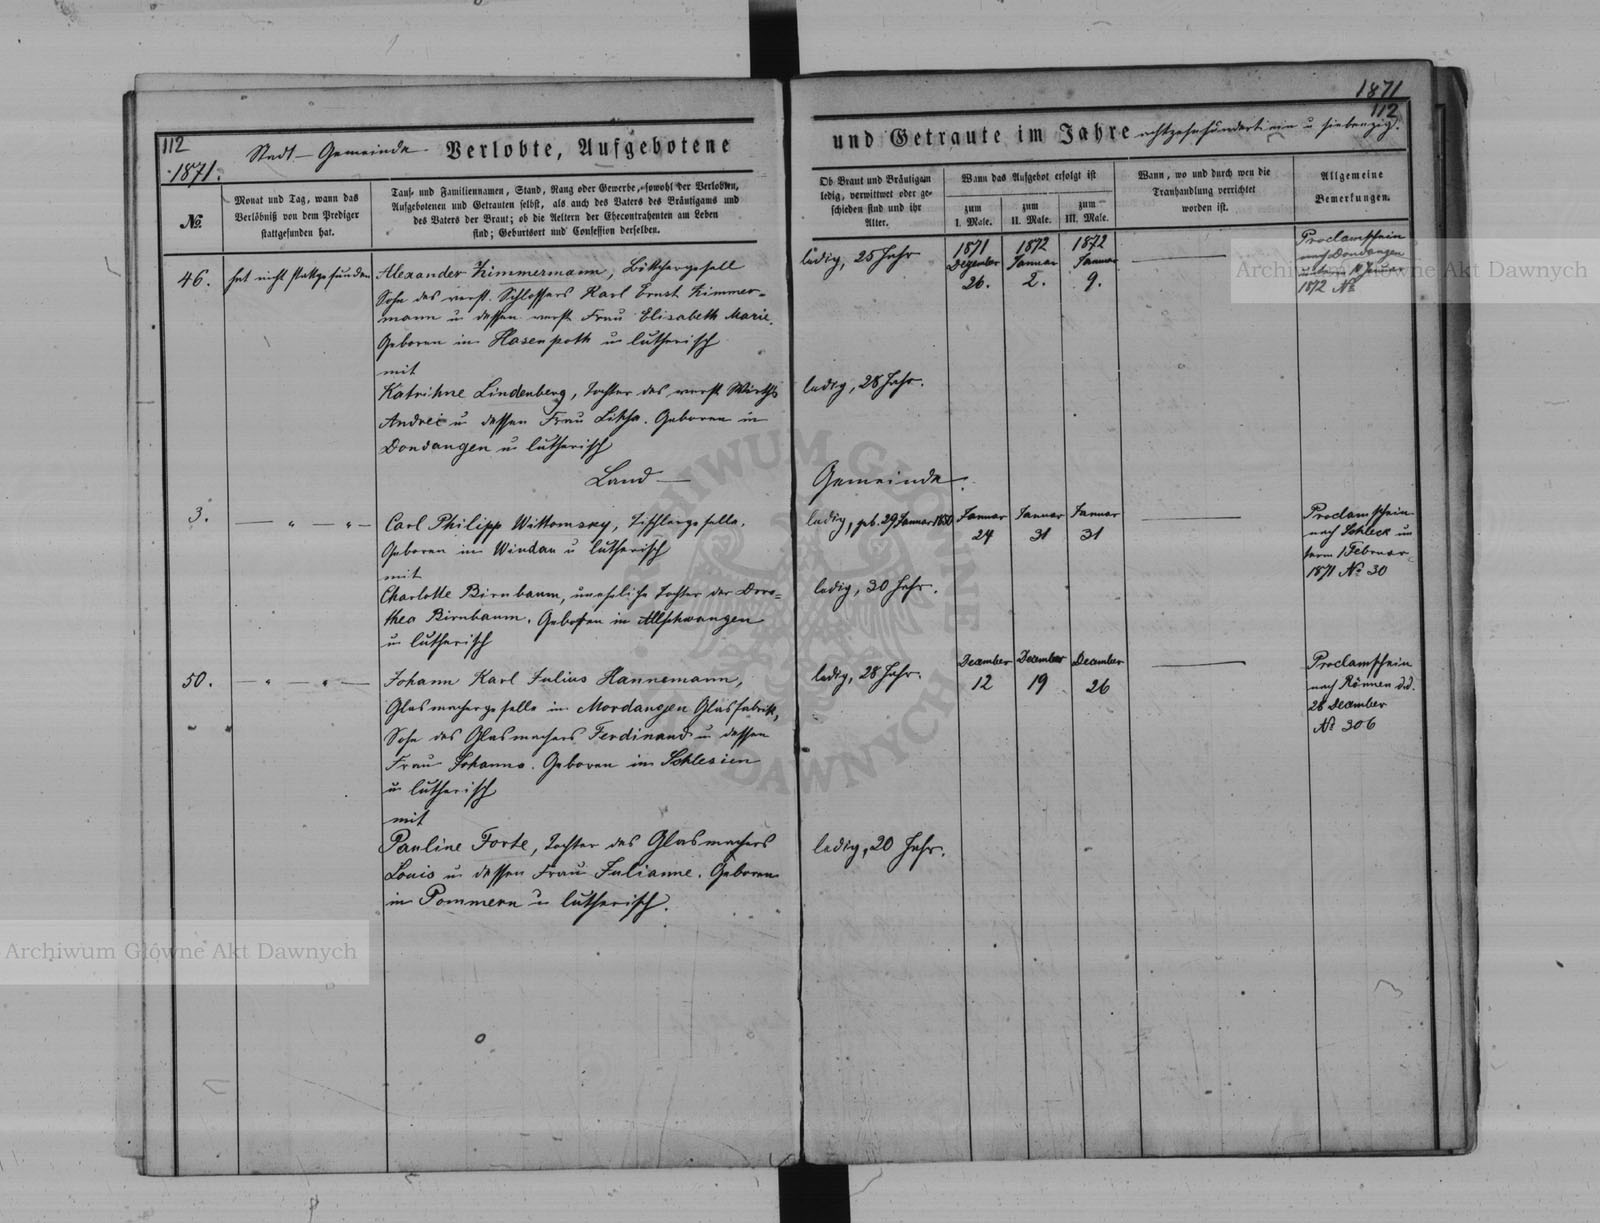 112
1871.
Stadt - Gemeinde Verlobte, Aufgebotene
No.
Monat und Tag, wann das
Verlöbniß von dem Prediger
stattgefunden hat.
Tauf- und Familiennamen, Stand, Rang oder Gewerbe, sowohl der Verlobten,
Aufgebotenen und Getrauten selbst, als auch des Vaters des Bräutigams und
des Vaters der Braut; ob die Aeltern der Ehecontrahenten am Leben
sind; Geburtsort und Confession derselben.
46.
hat nicht stattgefunden
Alexander Zimmermann, Böttchergesell
Sohn des verst. Schlossers Karl Ernst Zimmer-
mann u dessen verst. Frau Elisabeth Marie.
Geboren in Hasenpoth u lutherisch
mit
Katrihne Lindenberg, Tochter des verst. Wirths
Andrei u dessen Frau Lihsa. Geboren in
Dondangen u lutherisch
Land —
3.
— " — " —
Carl Philipp Wittomsky, Tischlergeselle.
Geboren in Windau u lutherisch
mit
Charlotte Birnbaum, uneheliche Tochter der Doro-
thea Birnbaum. Geboren in Allschwangen
u lutherisch
50.
— " — " —
Johann Karl Julius Hannemann,
Glasmachergeselle in Mordangen Glasfabrik,
Sohn des Glasmachers Ferdinand u dessen
Frau Johanna. Geboren in Schlesien
u lutherisch
mit
Pauline Forte, Tochter des Glasmachers
Louis u dessen Frau Julianne. Geboren
in Pommern u lutherisch.
1871
112
und Getraute im Jahre achtzehnhundert ein u siebenzig.
Ob Braut und Bräutigam
ledig, verwittwet oder ge-
schieden sind und ihr
Alter.
Wann das Aufgebot erfolgt ist
zum
I. Male.
zum
II. Male.
zum
III. Male.
Wann, wo und durch wen die
Trauhandlung verrichtet
worden ist.
Allgemeine
Bemerkungen.
ledig, 25 Jahr
1871
Dezember
26.
1872
Januar
2.
1872
Januar
9.
Proclamschein
nach Dondangen
Januar
1872 No
ledig, 28 Jahr.
Gemeinde.
ledig, geb. 29 Januar 1850
Januar
24
Januar
31
Januar
31
Proclamschein
nach Schleck un
term 1 Februar
1871 No 30
ledig, 30 Jahr.
ledig, 28 Jahr.
December
12
December
19
December
26
Proclamschein
nach Rönnen d.d.
26 December
No 306
ledig, 20 Jahr.
Archiwum Główne Akt Dawnych
Archiwum Główne Akt Dawnych
ARCHIWUM GŁÓWNE AKT DAWNYCH